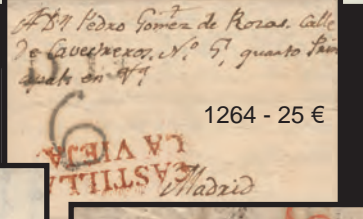 A Dn Pedro Gomez de Rozas. Calle
de Cavestreros, No 5, quarto Prin
en
1264 - 25 €
6
CASTILLA
LA VIEJA
Madrid